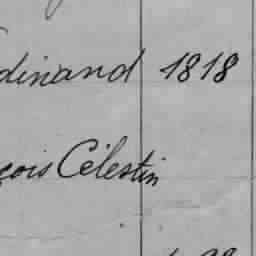 dinand 1818
çois Célestin